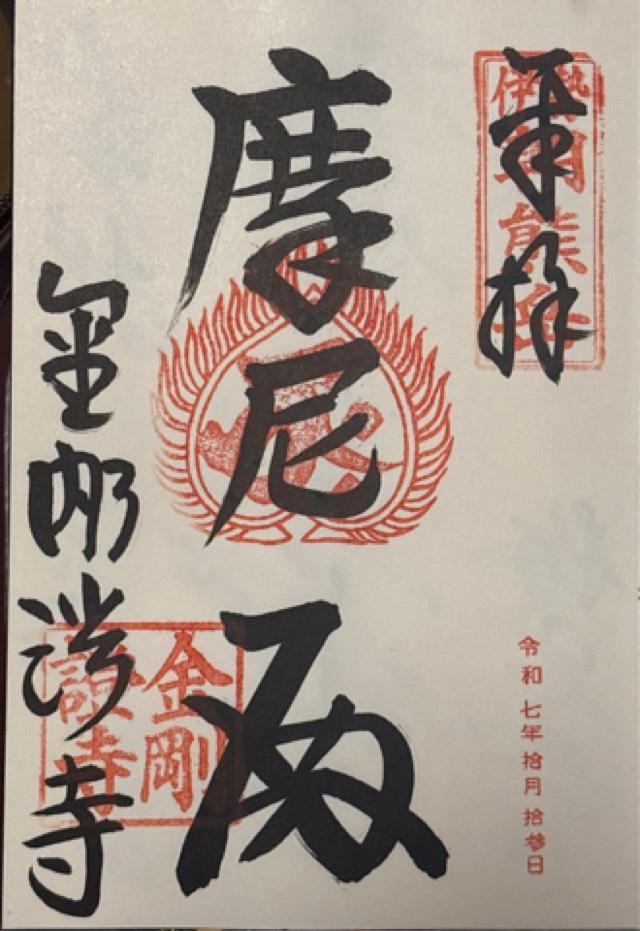 奉拝
伊勢朝熊岳
令和七年拾月拾参日
摩尼殿
金剛證寺
金剛
證寺